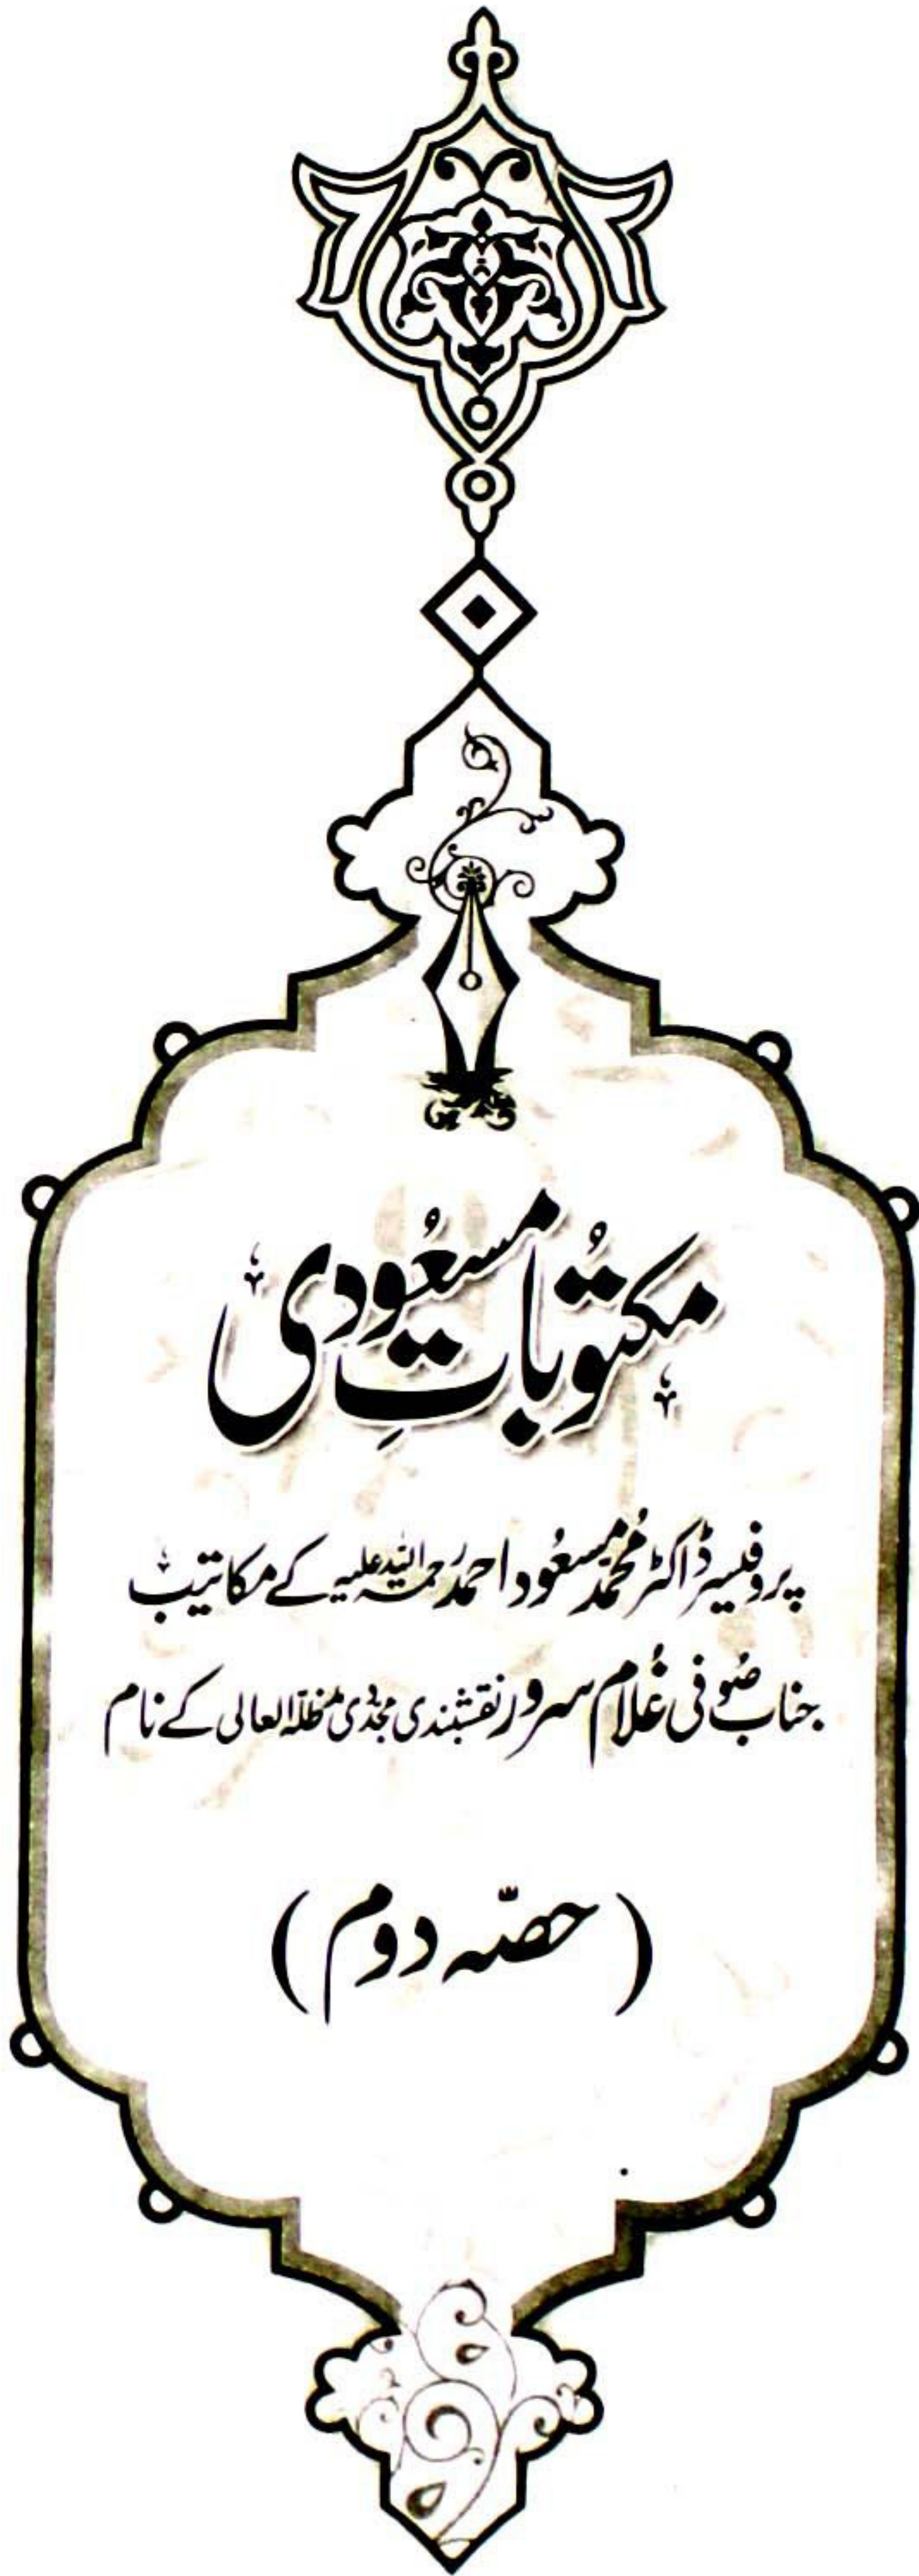 مکتوباتِ مسعُودی
پروفیسر ڈاکٹر محمد مسعُود احمد رحمۃ اللہ علیہ کے مکاتیب
جناب صُوفی غُلام سرور نقشبندی مجدّدی مدظلہ العالی کے نام
( حصّہ دوم )